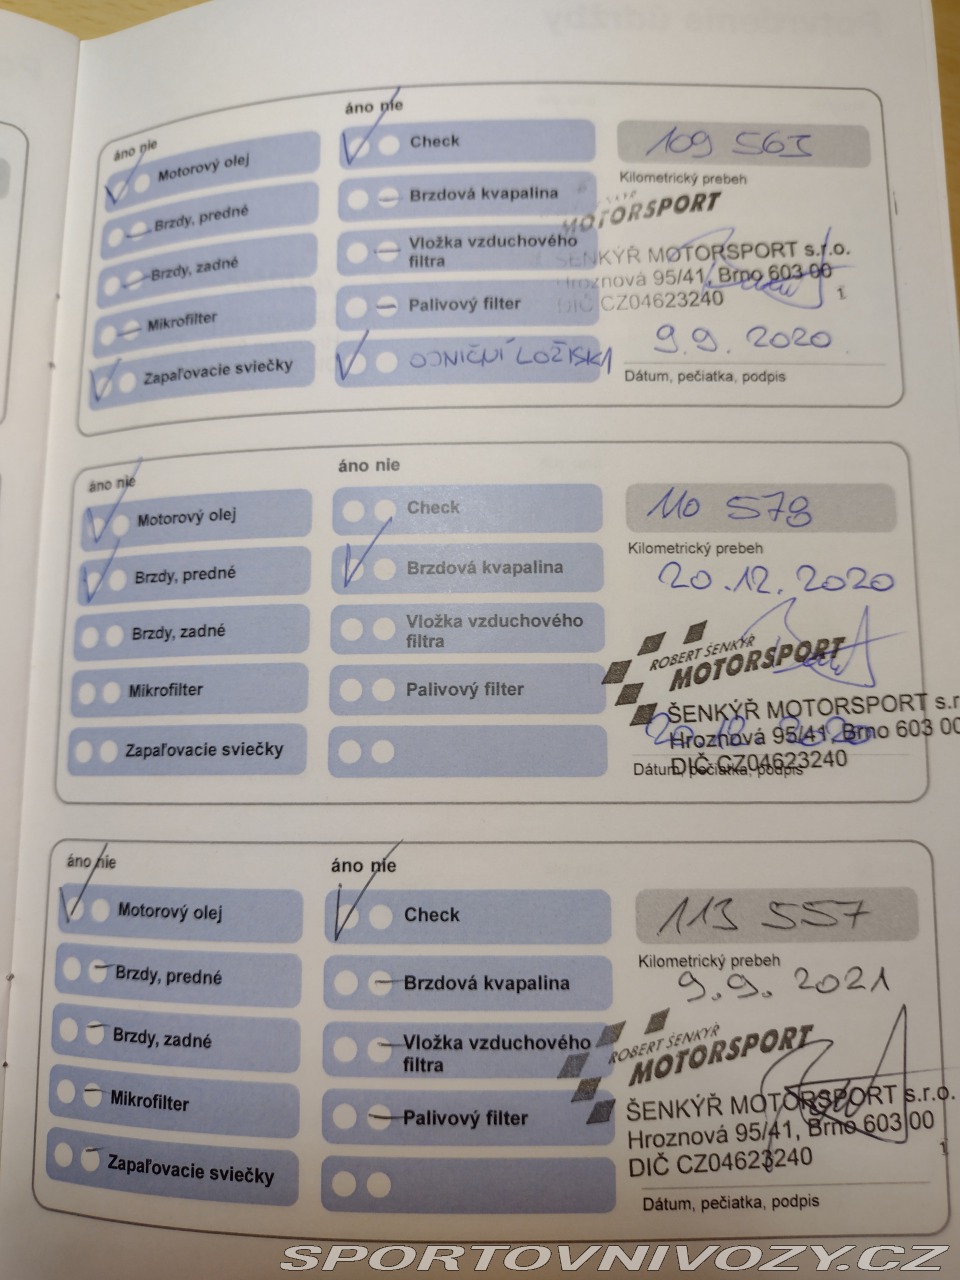 áno nie
Motorový olej
Brzdy, predné
Brzdy, zadné
Mikrofilter
Zapaľovacie sviečky
áno nie
Check
Brzdová kvapalina
Vložka vzduchového
filtra
Palivový filter
OJNIČNÍ LOŽISKA
109 563
Kilometrický prebeh
MOTORSPORT
ŠENKÝŘ MOTORSPORT s.r.o.
Hroznová 95/41, Brno 603 00
DIČ CZ04623240
1
9.9.2020
Dátum, pečiatka, podpis
áno nie
Motorový olej
Brzdy, predné
Brzdy, zadné
Mikrofilter
Zapaľovacie sviečky
áno nie
Check
Brzdová kvapalina
Vložka vzduchového
filtra
Palivový filter
110 578
Kilometrický prebeh
20.12.2020
ROBERT ŠENKÝŘ
MOTORSPORT
ŠENKÝŘ MOTORSPORT s.r
Hroznová 95/41, Brno 603 00
DIČ CZ04623240
Dátum, pečiatka, podpis
áno nie
Motorový olej
Brzdy, predné
Brzdy, zadné
Mikrofilter
Zapaľovacie sviečky
áno nie
Check
Brzdová kvapalina
Vložka vzduchového
filtra
Palivový filter
113 557
Kilometrický prebeh
9.9.2021
ROBERT ŠENKÝŘ
MOTORSPORT
ŠENKÝŘ MOTORSPORT s.r.o.
Hroznová 95/41, Brno 603 00
DIČ CZ04623240
1
Dátum, pečiatka, podpis
SPORTOVNIVOZY.CZ